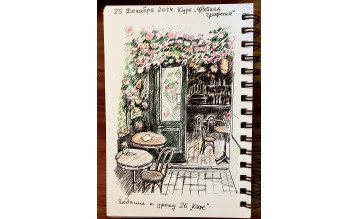 25 Декабря 2014 Курс „Цветная
графика"
Задание к уроку 26 „Кафе"